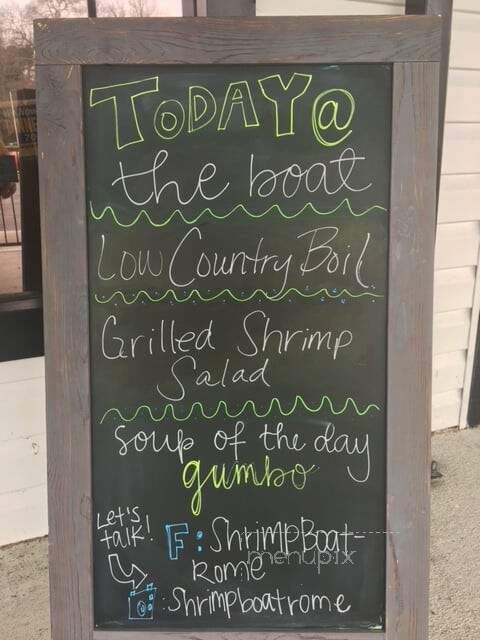 TODAY @
the boat
Low Country Boil
Grilled Shrimp
Salad
Soup of the day
gumbo
Let's
talk!
F: ShrimpBoat-
Rome
menupix
: Shrimpboatrome